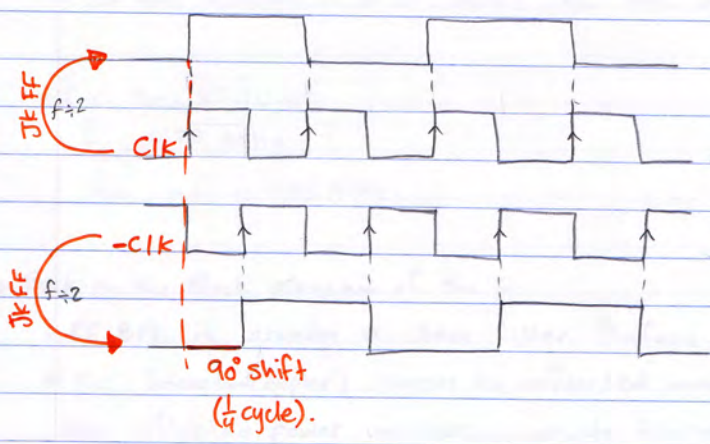 JK FF
f÷2
Clk
-Clk
JK FF
f÷2
90° shift
(1/4 cycle).